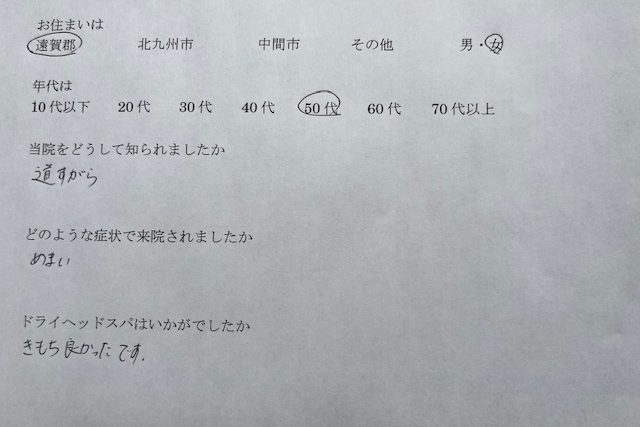 お住まいは
遠賀郡 北九州市 中間市 その他 男・女
年代は
10代以下 20代 30代 40代 50代 60代 70代以上
当院をどうして知られましたか
道すがら
どのような症状で来院されましたか
めまい
ドライヘッドスパはいかがでしたか
きもち良かったです.